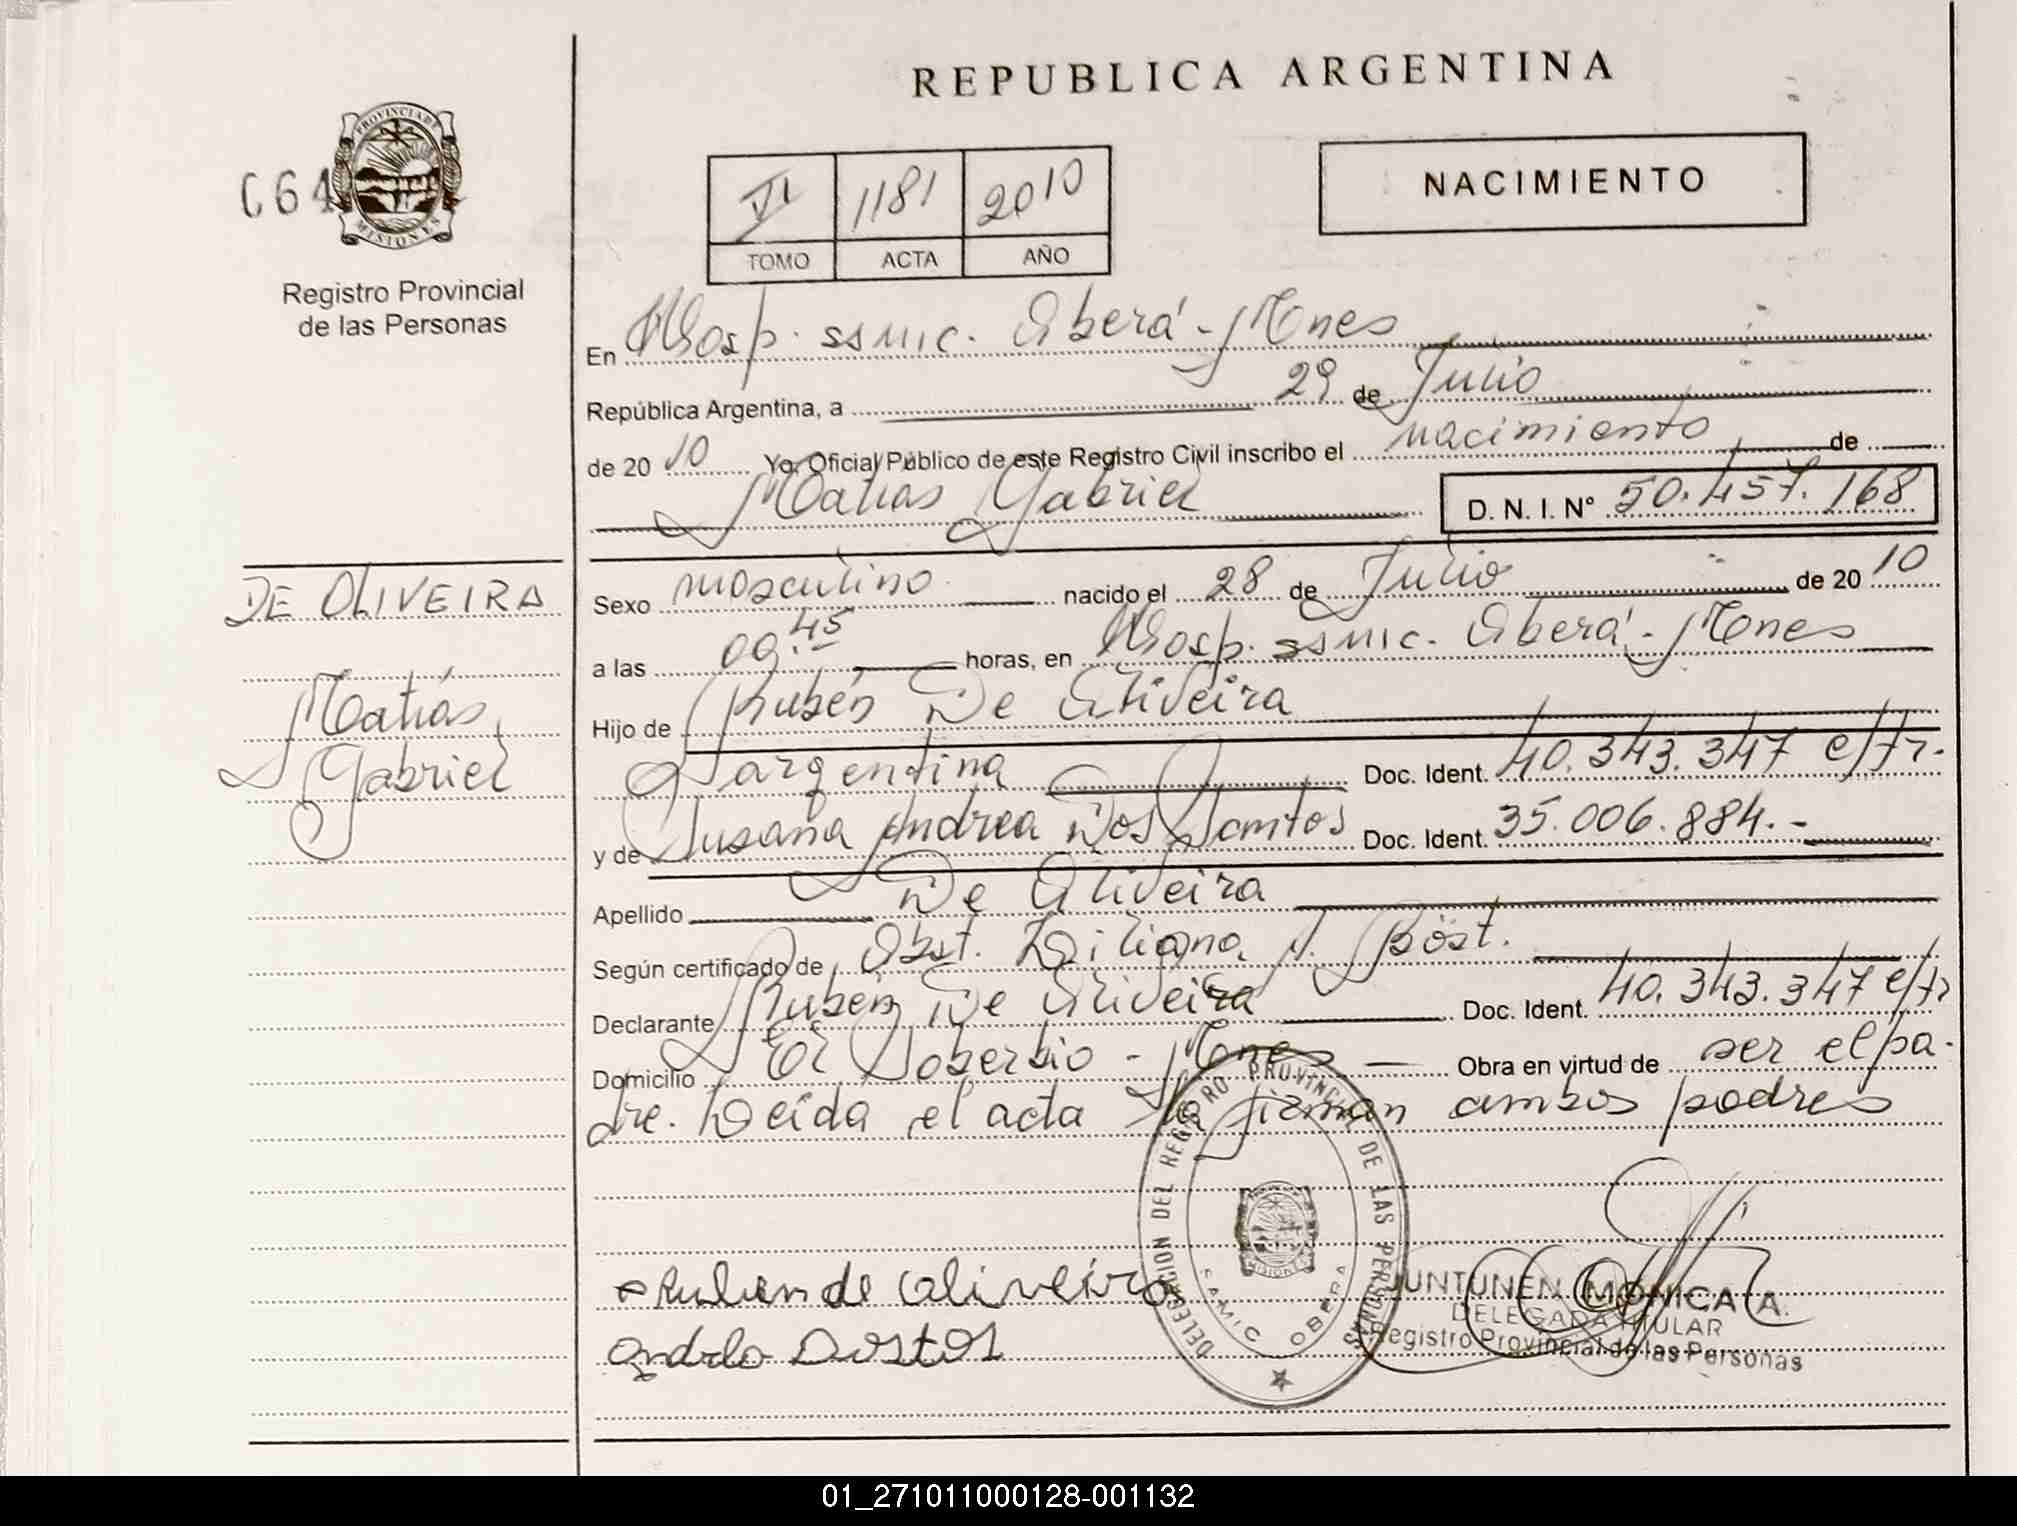 REPUBLICA ARGENTINA
PROVINCIA DE
MISIONES
064
Registro Provincial
de las Personas
VI 1181 2010
TOMO ACTA AÑO
NACIMIENTO
En Hosp. SSMIC. Oberá - Mnes
República Argentina, a 29 de Julio
de 2010 Yo, Oficial Público de este Registro Civil inscribo el nacimiento de
Matías Gabriel D. N. I. Nº 50.457.168
DE OLIVEIRA
Matías
Gabriel
Sexo masculino nacido el 28 de Julio de 2010
a las 09.45 horas, en Hosp. SSMIC. Oberá - Mnes
Hijo de Rubén De Oliveira
argentina Doc. Ident. 40.343.347 e/tr.
y de Susana Andrea Dos Santos Doc. Ident. 35.006.884.-
Apellido De Oliveira
Según certificado de Obst. Liliana N. Böst.
Declarante Rubén De Oliveira Doc. Ident. 40.343.347 e/tr
Domicilio El Soberbio - Mnes Obra en virtud de ser el pa-
dre. Leída el acta la firman ambos padres
Ruben de Oliveira
DELEGACION DEL REGISTRO PROVINCIAL DE LAS PERSONAS
SAMIC OBERA
MISIONES
JUNTUNEN MONICA A.
DELEGADA TITULAR
Registro Provincial de las Personas
01_271011000128-001132